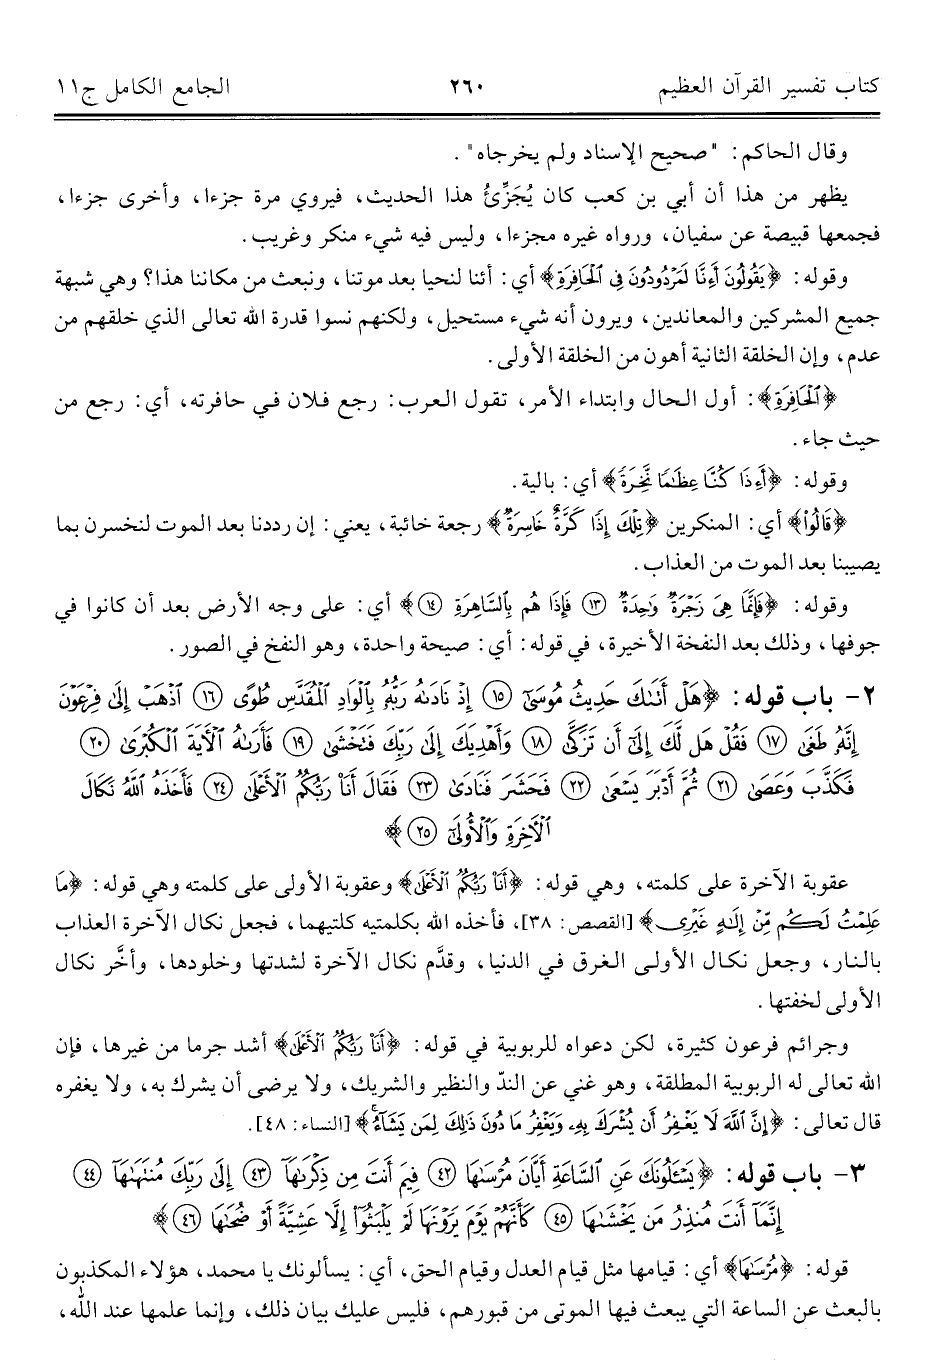 كتاب تفسير القرآن العظيم ٢٦٠ الجامع الكامل ج١١
وقال الحاكم: "صحيح الإسناد ولم يخرجاه".
يظهر من هذا أن أبي بن كعب كان يُجَزِّئُ هذا الحديث، فيروي مرة جزءا، وأخرى جزءا،
فجمعها قبيصة عن سفيان، ورواه غيره مجزءا، وليس فيه شيء منكر وغريب.
وقوله: ﴿يَقُولُونَ أَءِنَّا لَمَرْدُودُونَ فِي ٱلْحَافِرَةِ﴾ أي: أئنا لنحيا بعد موتنا، ونبعث من مكاننا هذا؟ وهي شبهة
جميع المشركين والمعاندين، ويرون أنه شيء مستحيل، ولكنهم نسوا قدرة الله تعالى الذي خلقهم من
عدم، وإن الخلقة الثانية أهون من الخلقة الأولى.
﴿ٱلْحَافِرَةِ﴾: أول الحال وابتداء الأمر، تقول العرب: رجع فلان في حافرته، أي: رجع من
حيث جاء.
وقوله: ﴿أَءِذَا كُنَّا عِظَٰمًا نَّخِرَةً﴾ أي: بالية.
﴿قَالُوا۟﴾ أي: المنكرين ﴿تِلْكَ إِذًا كَرَّةٌ خَاسِرَةٌ﴾ رجعة خائبة، يعني: إن رددنا بعد الموت لنخسرن بما
يصيبنا بعد الموت من العذاب.
وقوله: ﴿فَإِنَّمَا هِىَ زَجْرَةٌ وَٰحِدَةٌ ١٣ فَإِذَا هُم بِٱلسَّاهِرَةِ ١٤﴾ أي: على وجه الأرض بعد أن كانوا في
جوفها، وذلك بعد النفخة الأخيرة، في قوله: أي: صيحة واحدة، وهو النفخ في الصور.
٢- باب قوله: ﴿هَلْ أَتَىٰكَ حَدِيثُ مُوسَىٰٓ ١٥ إِذْ نَادَىٰهُ رَبُّهُۥ بِٱلْوَادِ ٱلْمُقَدَّسِ طُوًى ١٦ ٱذْهَبْ إِلَىٰ فِرْعَوْنَ
إِنَّهُۥ طَغَىٰ ١٧ فَقُلْ هَل لَّكَ إِلَىٰٓ أَن تَزَكَّىٰ ١٨ وَأَهْدِيَكَ إِلَىٰ رَبِّكَ فَتَخْشَىٰ ١٩ فَأَرَىٰهُ ٱلْءَايَةَ ٱلْكُبْرَىٰ ٢٠
فَكَذَّبَ وَعَصَىٰ ٢١ ثُمَّ أَدْبَرَ يَسْعَىٰ ٢٢ فَحَشَرَ فَنَادَىٰ ٢٣ فَقَالَ أَنَا۠ رَبُّكُمُ ٱلْأَعْلَىٰ ٢٤ فَأَخَذَهُ ٱللَّهُ نَكَالَ
ٱلْءَاخِرَةِ وَٱلْأُولَىٰٓ ٢٥﴾
عقوبة الآخرة على كلمته، وهي قوله: ﴿أَنَا۠ رَبُّكُمُ ٱلْأَعْلَىٰ﴾ وعقوبة الأولى على كلمته وهي قوله: ﴿مَا
عَلِمْتُ لَكُم مِّنْ إِلَٰهٍ غَيْرِى﴾ [القصص: ٣٨]، فأخذه الله بكلمتيه كلتيهما، فجعل نكال الآخرة العذاب
بالنار، وجعل نكال الأولى الغرق في الدنيا، وقدَّم نكال الآخرة لشدتها وخلودها، وأخَّر نكال
الأولى لخفتها.
وجرائم فرعون كثيرة، لكن دعواه للربوبية في قوله: ﴿أَنَا۠ رَبُّكُمُ ٱلْأَعْلَىٰ﴾ أشد جرما من غيرها، فإن
الله تعالى له الربوبية المطلقة، وهو غني عن الندّ والنظير والشريك، ولا يرضى أن يشرك به، ولا يغفره
قال تعالى: ﴿إِنَّ ٱللَّهَ لَا يَغْفِرُ أَن يُشْرَكَ بِهِۦ وَيَغْفِرُ مَا دُونَ ذَٰلِكَ لِمَن يَشَآءُ﴾ [النساء: ٤٨].
٣- باب قوله: ﴿يَسْـَٔلُونَكَ عَنِ ٱلسَّاعَةِ أَيَّانَ مُرْسَىٰهَا ٤٢ فِيمَ أَنتَ مِن ذِكْرَىٰهَآ ٤٣ إِلَىٰ رَبِّكَ مُنتَهَىٰهَآ ٤٤
إِنَّمَآ أَنتَ مُنذِرُ مَن يَخْشَىٰهَا ٤٥ كَأَنَّهُمْ يَوْمَ يَرَوْنَهَا لَمْ يَلْبَثُوٓا۟ إِلَّا عَشِيَّةً أَوْ ضُحَىٰهَا ٤٦﴾
قوله: ﴿مُرْسَىٰهَا﴾ أي: قيامها مثل قيام العدل وقيام الحق، أي: يسألونك يا محمد، هؤلاء المكذبون
بالبعث عن الساعة التي يبعث فيها الموتى من قبورهم، فليس عليك بيان ذلك، وإنما علمها عند الله،